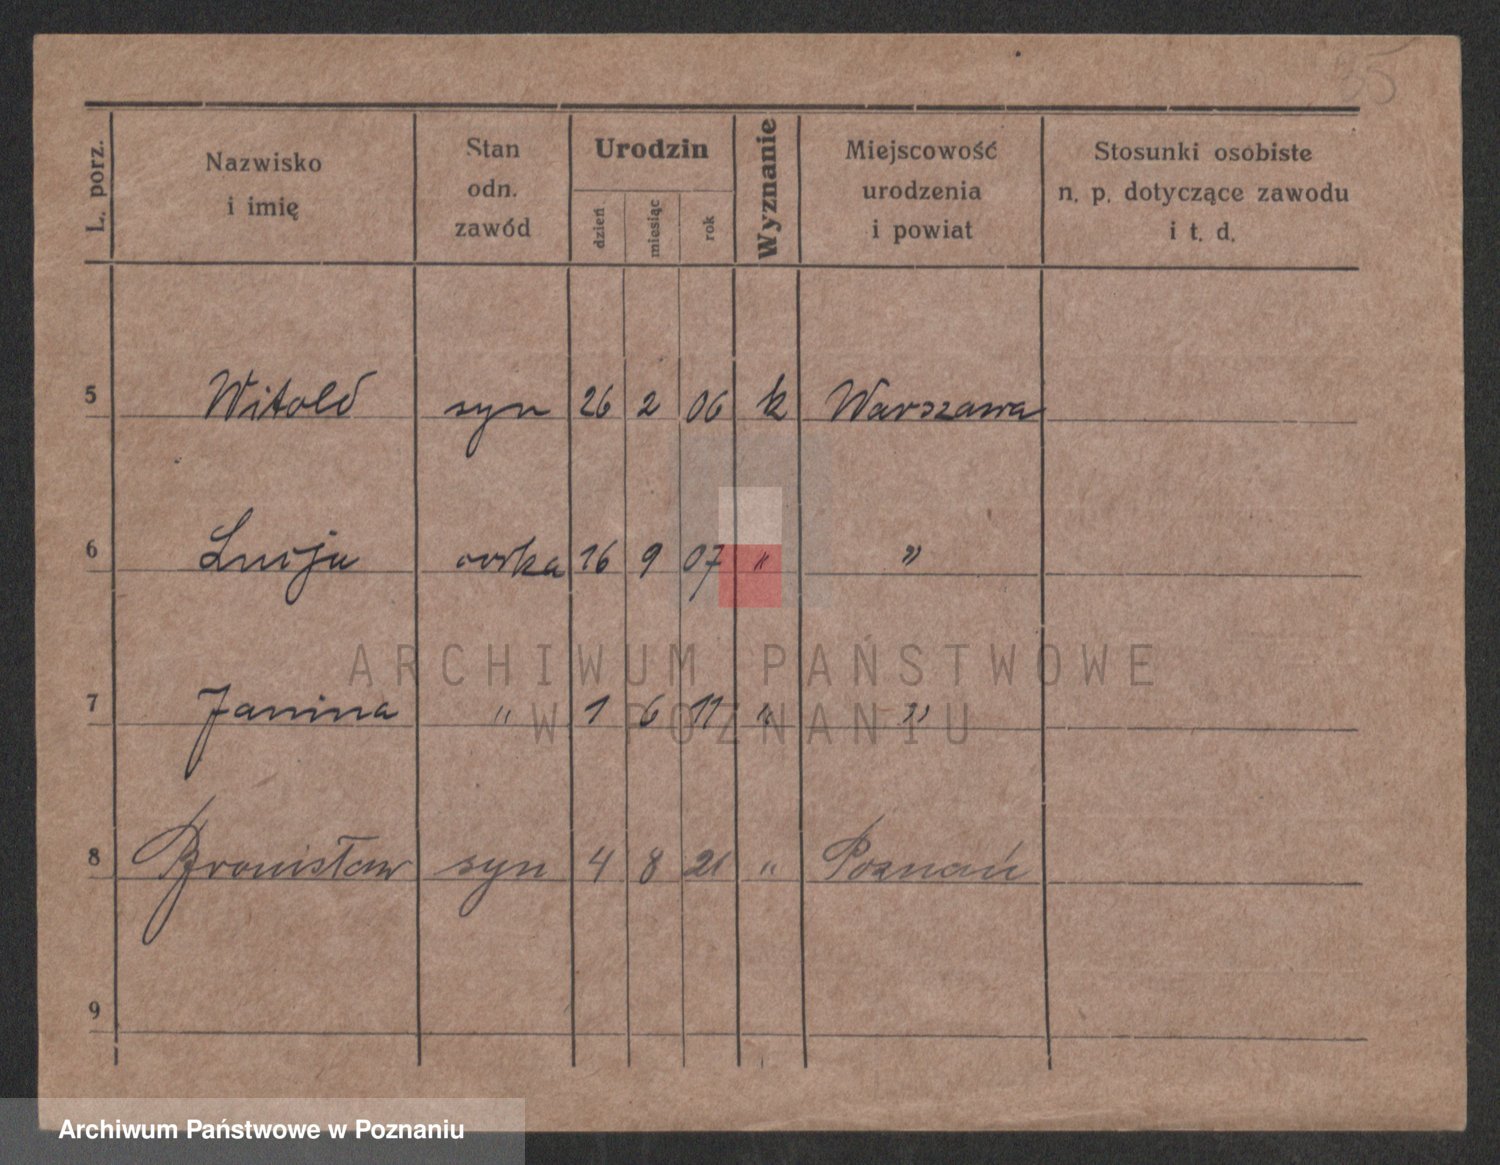 85
L. porz.
Nazwisko
i imię
Stan
odn.
zawód
Urodzin
dzień
miesiąc
rok
Wyznanie
Miejscowość
urodzenia
i powiat
Stosunki osobiste
n. p. dotyczące zawodu
i t. d.
5 Witold syn 26 2 06 k Warszawa
6 Lucja córka 16 9 07 " "
ARCHIWUM PAŃSTWOWE
7 Janina " 1 6 11 " "
W POZNANIU
8 Bronisław syn 4 8 21 " Poznań
9
Archiwum Państwowe w Poznaniu